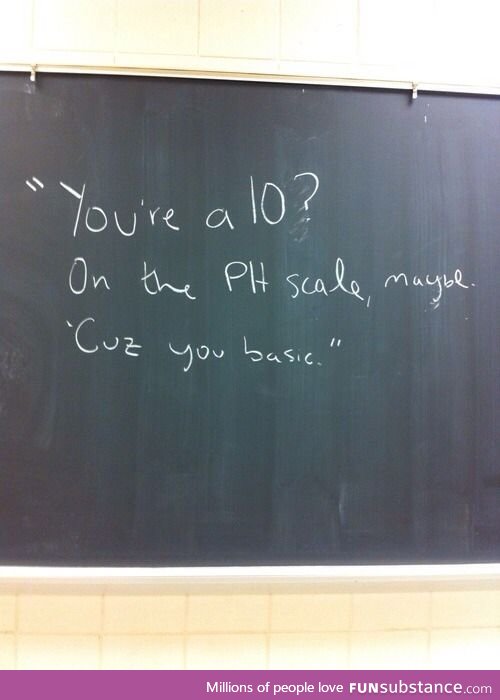 "You're a 10?
On the PH scale, maybe.
'Cuz you basic."
Millions of people love FUNsubstance.com